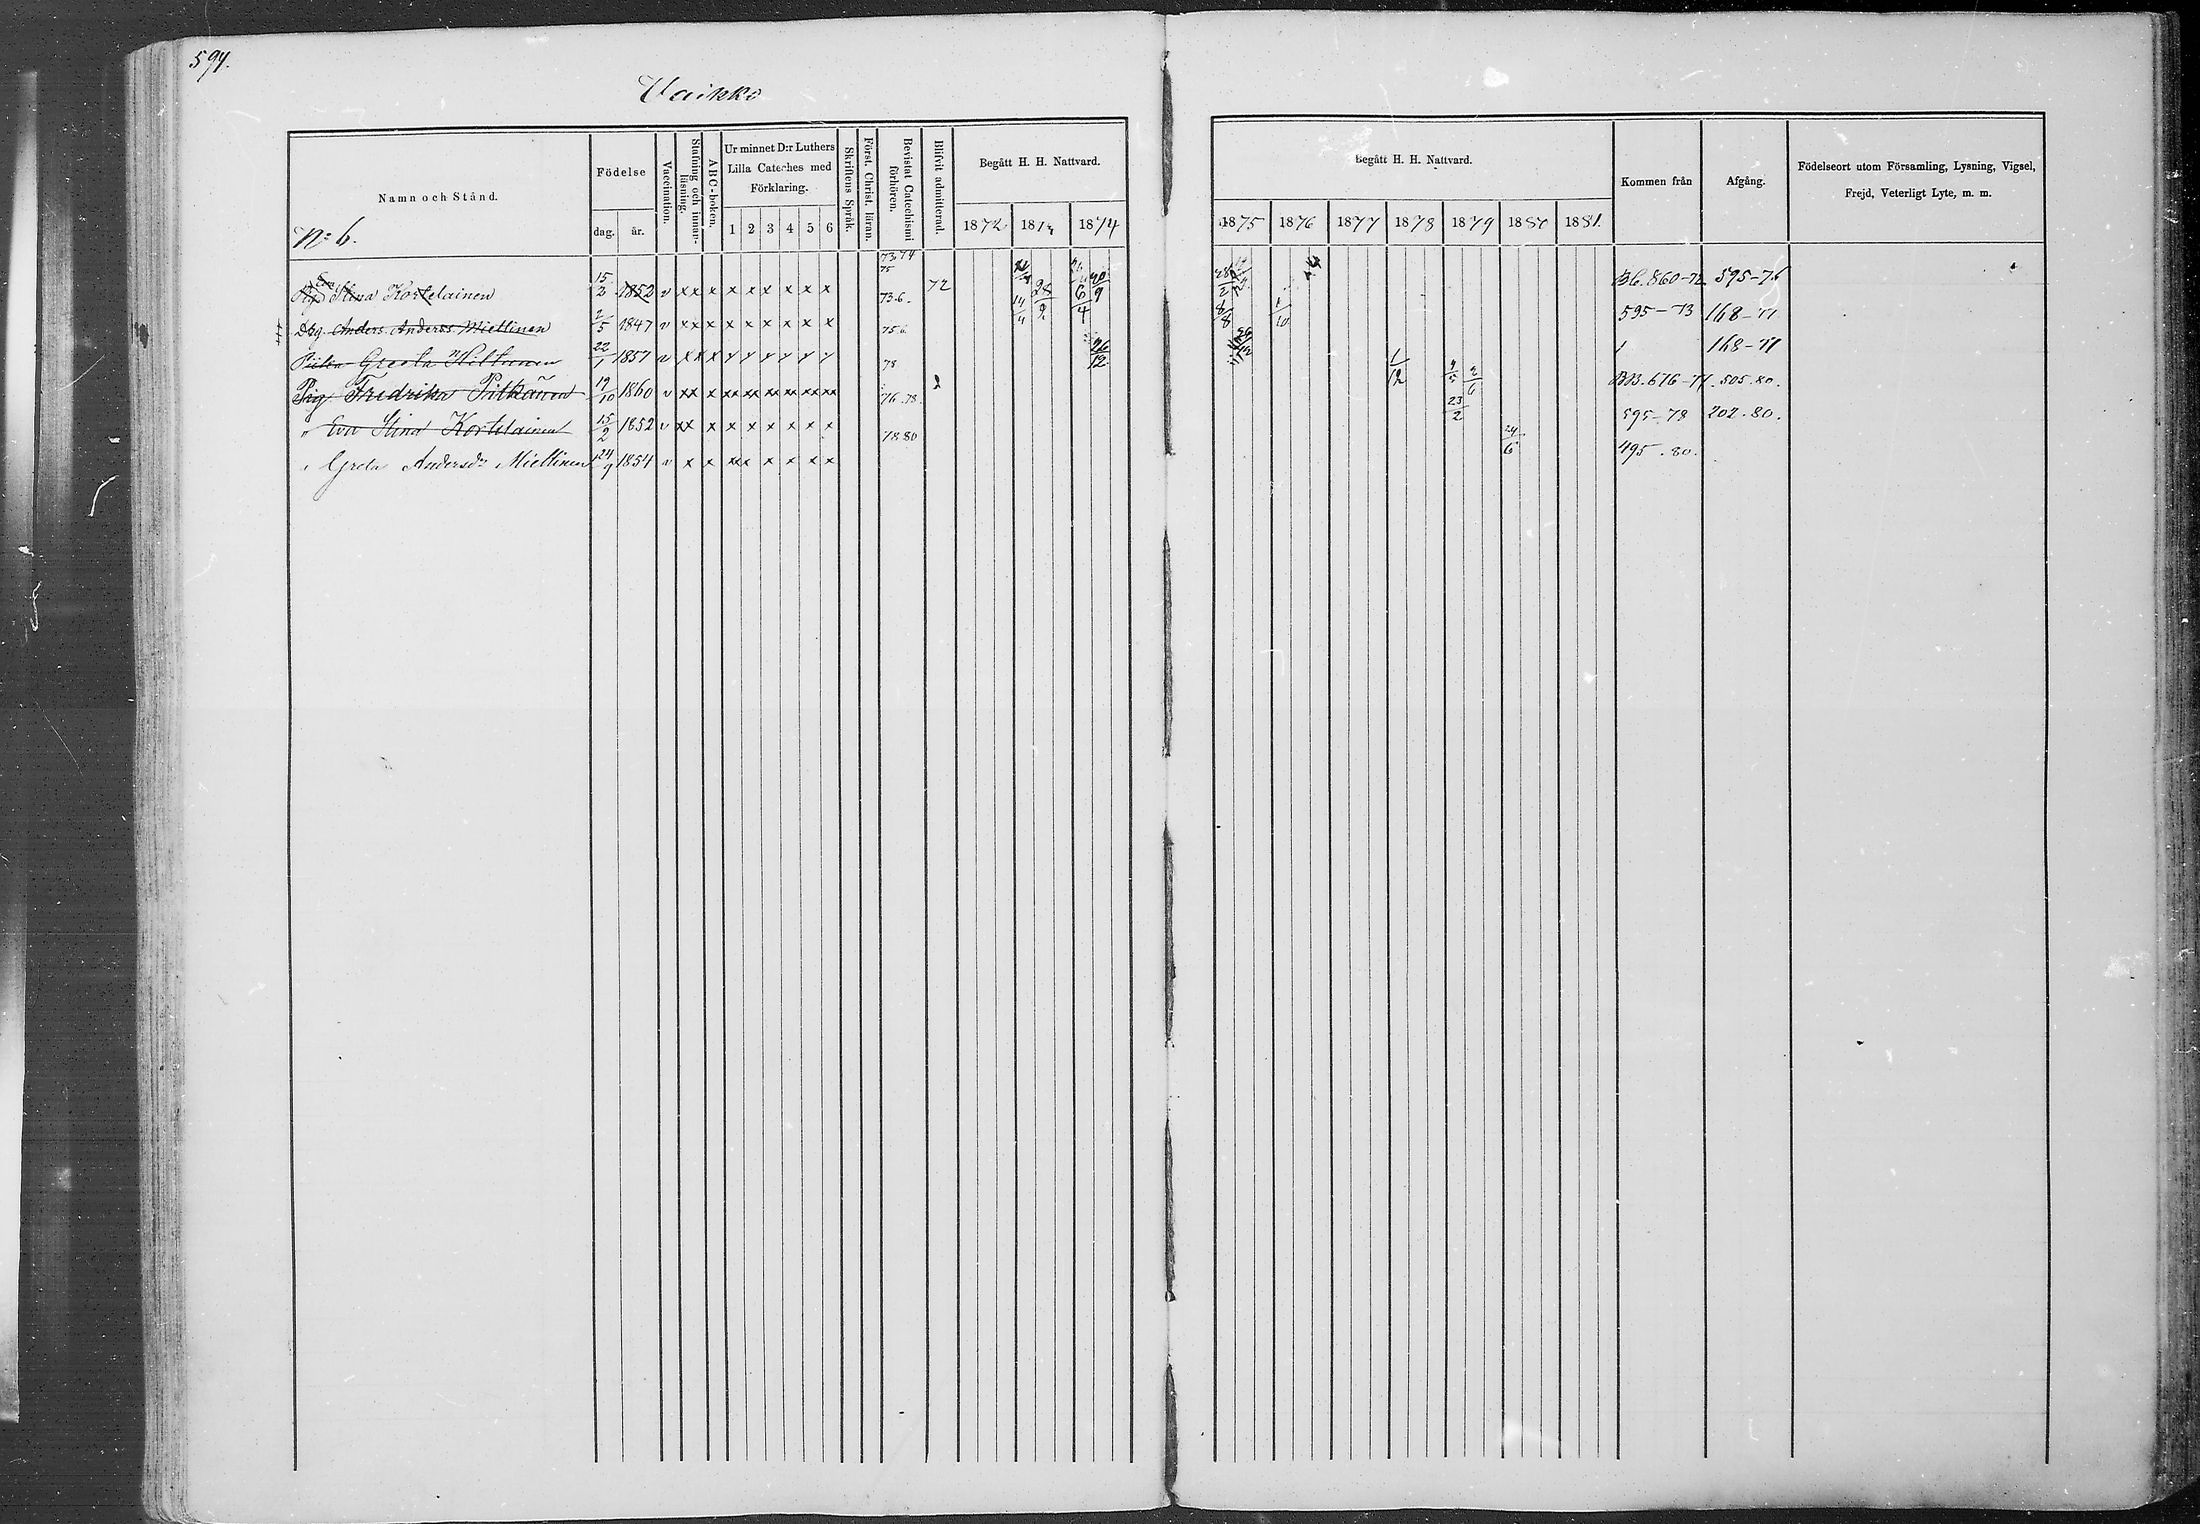 594.
Vaikko
Namn och Stånd.
Födelse
dag. år.
Vaccination.
Stafning och innanläsning.
ABC-boken.
Ur minnet D:r Luthers
Lilla Cateches med
Förklaring.
1 2 3 4 5 6
Skriftens Språk.
Först. Christ. läran.
Bevistat Catechismi förhören.
Blifvit admitterad.
Begått H. H. Nattvard.
1872 187 1874
Begått H. H. Nattvard.
1875 1876 1877 1878 1879 1880 1881.
Kommen från
Afgång.
Födelseort utom Församling, Lysning, Vigsel,
Frejd, Veterligt Lyte, m. m.
No 6.
Pig Eva Stina Kortelainen 15/2 1852 v x x x x x x x x x 73.74 75 72 28/9 6/4 20/9 28/2 860-72 595-76
Anders Anderss Miettinen 2/5 1847 v x x x x x x x x x 73.6. 14/4 8/8 1/10 595-73 168-77
Greeta Hiltunen 22/1 1857 v x x x 75 6 26/12 168-77
Pig Fredrika Pitkänen 19/10 1860 v xx x xx xx xx xx xx xx 78 1/12 2/6 BB. 676-77. 505.80.
" Eva Stina Kortelainen 15/2 1852 v xx x x x x x x x 76.78. 23/2 595-78 202.80.
" Greta Andersdr Miettinen 24/9 1854 v x x xx x x x x 78 80 24/6 495.80.